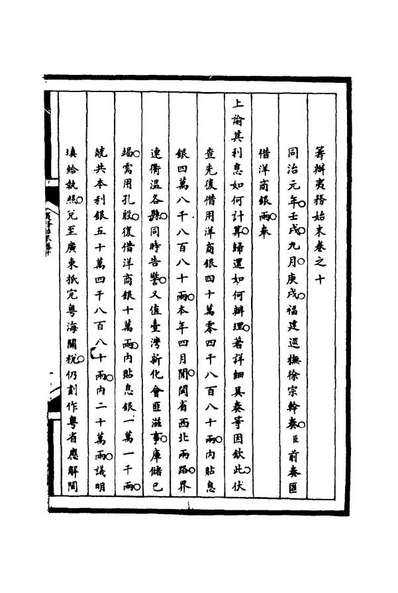 籌辦夷務始末卷之十
同治元年壬戌九月。庚戌。福建巡撫徐宗幹奏。臣前奏匯
借洋商銀兩。奉
上諭其利息如何計算。歸還如何辦理。著詳細具奏等因欽此。伏
查先後借用洋商銀四十萬零四千八百八十兩。內貼息
銀四萬八千八百八十兩。本年四月間。閩省西北兩路。界
連衢溫各縣。同時告警。又值臺灣新化會匪滋事。庫儲已
竭。需用孔殷。復借洋商銀十萬兩。內貼息銀一萬一千兩。
統共本利銀五十萬四千八百八十兩。內二十萬兩。議明
填給執照。兌至廣東抵完粵海關稅。仍劃作粵省應解閩